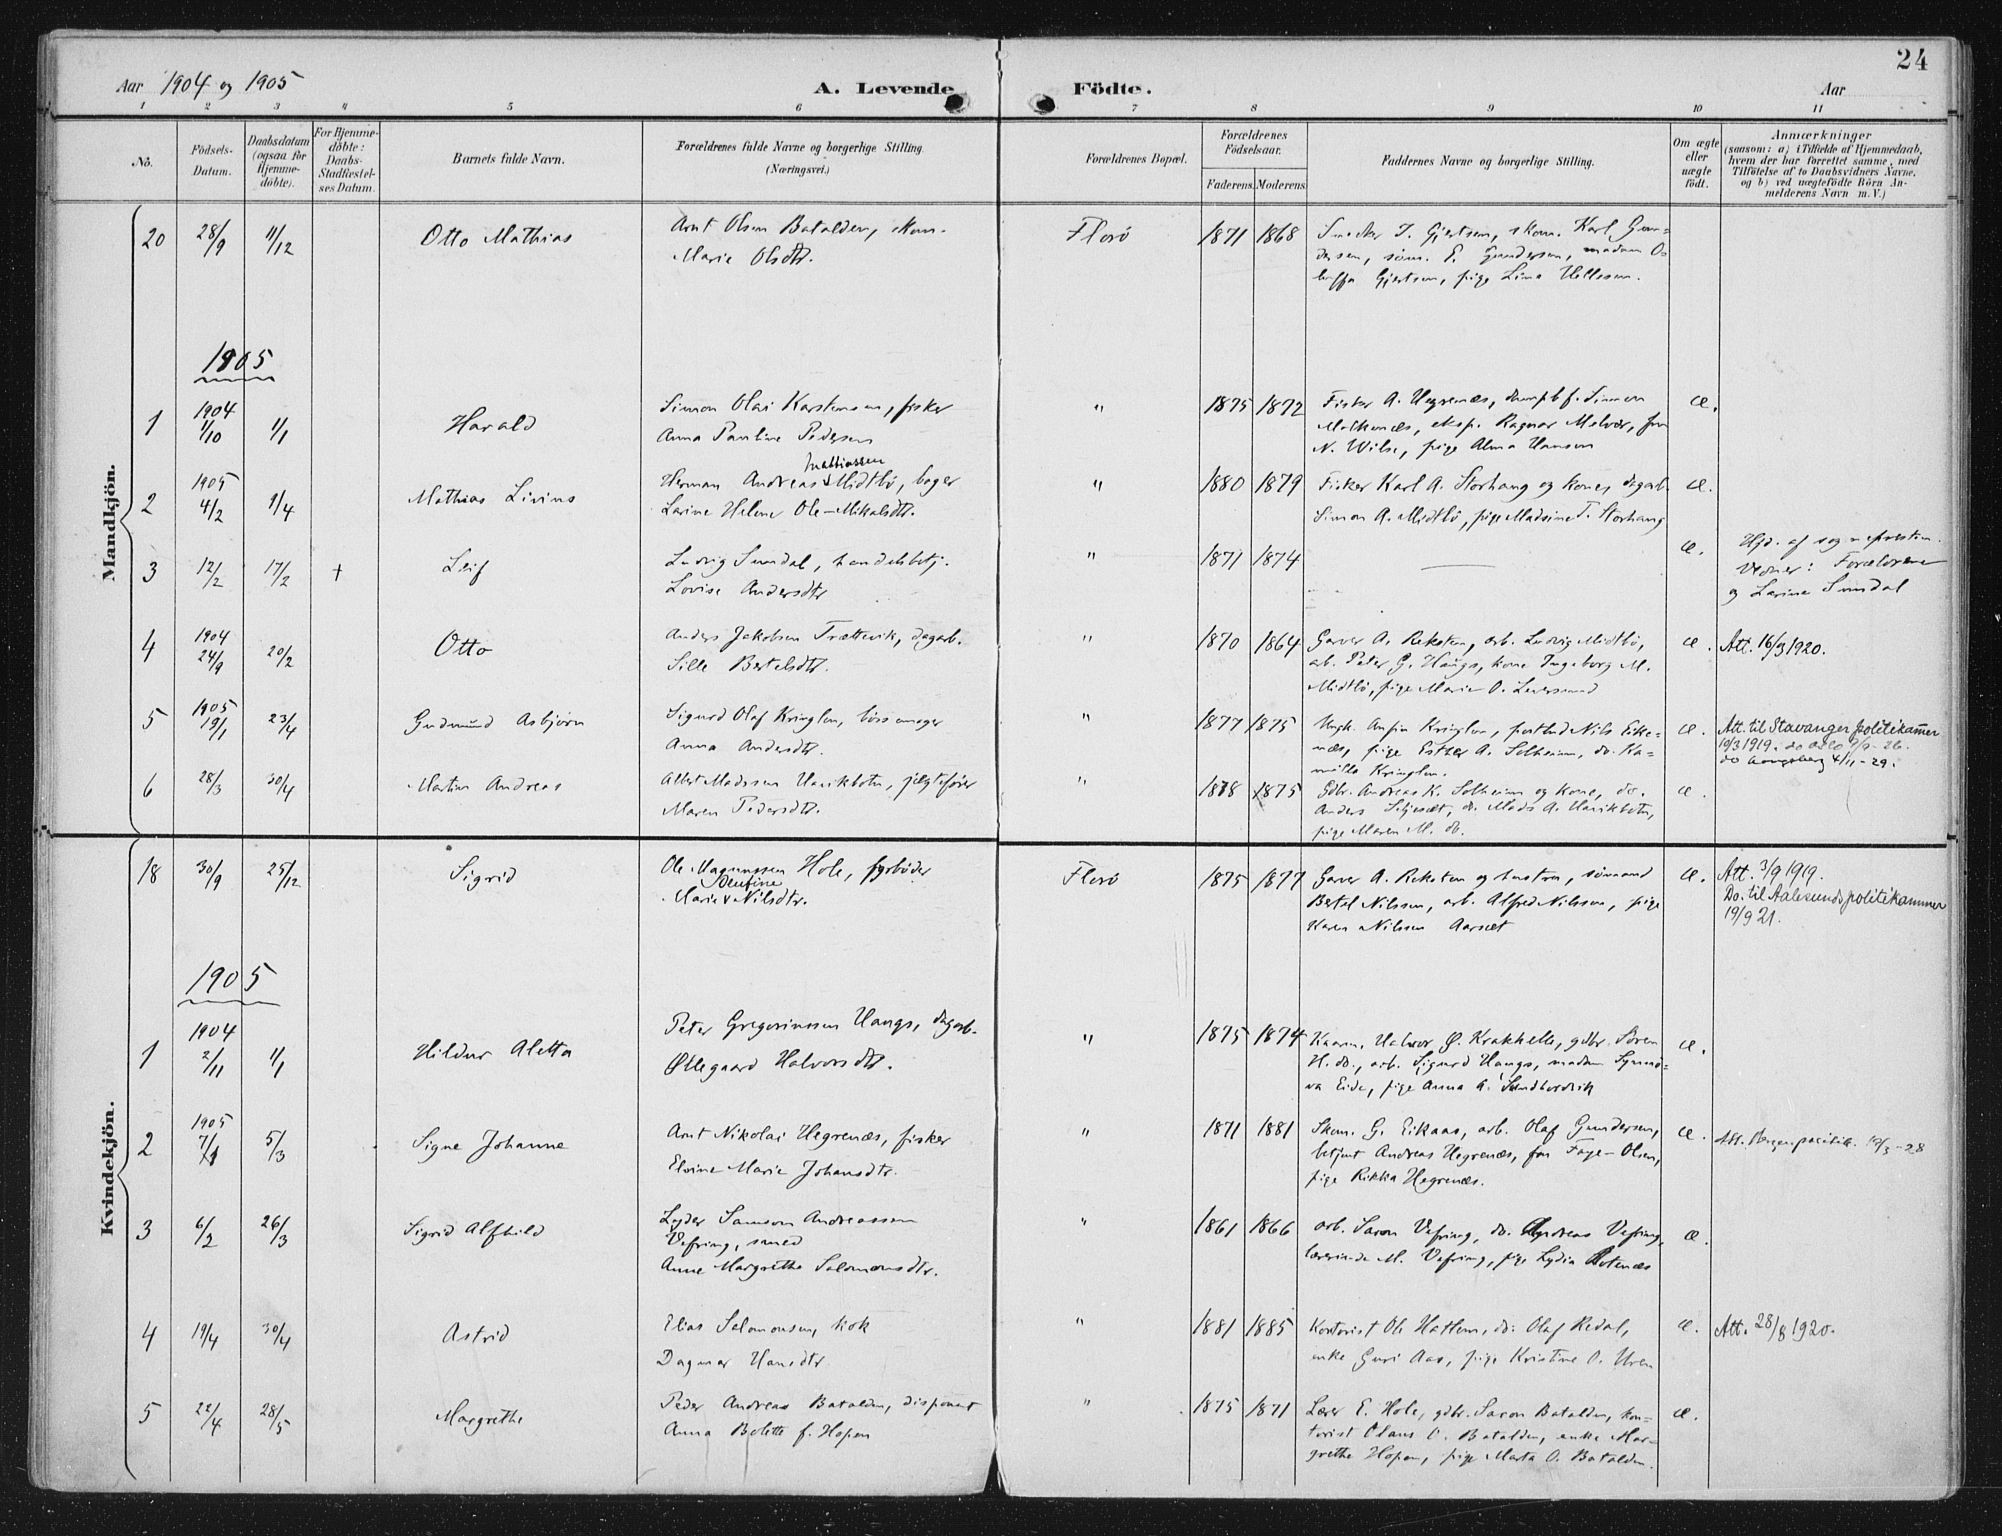 24
Aar 1904 og 1905
A. Levende
Födte.
Aar
1 2 3 4 5 6 7 8 9 10 11
No.
Födsels-
Datum.
Daabsdatum
(ogsaa for
Hjemme-
döbte).
For Hjemme-
döbte:
Daabs-
Stadfæstel-
ses Datum.
Barnets fulde Navn.
Forældrenes fulde Navne og borgerlige Stilling
(Næringsvei.)
Forældrenes Bopæl.
Forældrenes
Födselsaar.
Faderens.
Moderens
Faddernes Navne og borgerlige Stilling.
Om ægte
eller
uægte
födt.
Anmærkninger
(saasom: a) i Tilfælde af Hjemmedaab,
hvem der har forrettet samme, med
Tilföielse af to Daabsvidners Navne,
og b) ved uægtefödte Börn An-
melderens Navn m.V.)
Mandkjön.
20 28/9 11/12 Otto Mathias
Arnt Olsen Batalden, skom.
Marie Olsdtr.
Florö 1871 1868
Snedker J. Gjertsen, skom. Karl Gun-
dersen, söm. E. Gundersen, madam O-
Gjertsen, pige Lina
1905
1 1904 1/10 1/1 Harald
Simon Olai Karstensen, fisker
Anna Pauline Pedersen
" 1875 1872
Fisker A. Hegrenæs, dampb.f. Simon
eksp. Ragnar Melvær, fru
N. Wilse, pige Alma Hansen
æ.
2 1905 4/2 9/4 Mathias Livius
Mathiassen
Herman Andreas Midtbö, bager
Larine Helene Ole-Mikalsdtr.
" 1880 1879
Fisker Karl A. Storhaug og kone, dagarb.
Simon A. Midtbö, pige Madsine T. Storhaug
æ.
3 12/2 17/2 + Leif
Ludvig Sundal, handelsbetj.
Lovise Andersdtr
" 1871 1874
æ.
Hjd. af sognepresten.
Vidner: Forældrene
og Larine Sundal
4 1904 24/9 20/2 Otto
Anders Jakobsen Trættevik, dagarb.
Sille Bertelsdtr.
" 1870 1864
Garver A. Reksten, arb. Ludvig Midtbö,
arb. Peter G. Haugs, kone Ingeborg M.
Midtbö, pige Marie O.
æ. Att. 16/3 1920.
5 1905 19/1 23/4 Gudmund Asbjørn
Sigurd Olaf Kringlen,
Anna Andersdtr.
" 1877 1875
Ungk. Ansfin Kringlen, Nils Eike-
næs, pige Esther A. Solheim, do. Ka-
milla Kringlen.
æ. Att. til Stavanger politikammer
10/3 1919. do Oslo
do Kongsberg 4/11-29.
6 28/3 30/4 Martin Andreas
Albert Madssen Havikbotn, jægtefører
Maren Pedersdtr.
" 1878 1875
Gdbr. Andreas K. Solheim og kone, do.
Anders do. Mads A. Havikbotn,
pige Maren M. do.
æ.
Kvindekjön.
18 30/9 25/12 Sigrid
Ole Magnussen Hole, fyrböder
Marie Nilsdtr.
Florö 1875 1877
Garver A. Reksten og hustru, sömand
Bertel Nilssen, arb. Alfred Nilssen, pige
Karen Nilssen Aarsæt
æ. Att. 3/9 1919.
Do. til Aalesunds politikammer
19/9 21.
1905
1 1904 2/11 1/1 Hildur Aletta
Peter Gregoriussen Haugs, dagarb.
Øllegaard Halvorsdtr.
" 1875 1874
Kaarm. Halvor Ø. Krakhelle, gdbr. Søren
H. do., arb. Sigurd Haugs, madam Synnö-
va Eide, pige Anna A.
æ.
2 1905 7/1 5/3 Signe Johanne
Arnt Nikolai Hegrenæs, fisker
Elvine Marie Johansdtr.
" 1871 1881
Skom. G. Eikaas, arb. Olaf Gundersen,
betjent Andreas Hegrenæs, fru Faye-Olsen,
pige Rikka Hegrenæs.
æ. Att. Bergen politik. 19/3-28
3 6/2 26/3 Sigrid Alfhild
Lyder Samson Andreassen
Vefring, smed
Anne Margrethe Salomonsdtr.
" 1861 1866
arb. Saron Vefring, do. Andreas Vefring,
lærerinde M. Vefring, pige Lydia Rotenæs
æ.
4 19/4 30/4 Astrid
Elias Salomonsen, kok
Dagmar Hansdtr
" 1881 1885
Kontorist Ole Hatlem, do. Olaf Redal,
enke Guri Aas, pige Kristine O. Uren
æ. Att. 28/8 1920.
5 22/4 28/5 Margrethe
Peder Andreas Batalden, disponent
Anna Bolette f. Hopen
" 1875 1871
Lærer E. Hole, gdbr. Saron Batalden, kon-
torist Claus O. Batalden, enke Mar-
grethe Hopen, pige Marta O. Batalden.
æ.